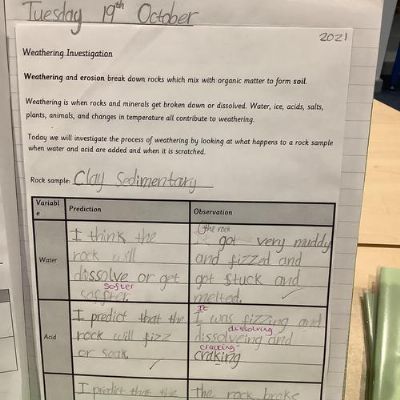 Tuesday 19th October
2021
Weathering Investigation
Weathering and erosion break down rocks which mix with organic matter to form soil.
Weathering is when rocks and minerals get broken down or dissolved. Water, ice, acids, salts,
plants, animals, and changes in temperature all contribute to weathering.
Today we will investigate the process of weathering by looking at what happens to a rock sample
when water and acid are added and when it is scratched.
Rock sample: Clay Sedimentary
Variable
Prediction
Observation
Water
I think the
rock will
dissolve or get
softer
the rock
got very muddy
and fizzed and
got stuck and
melted.
Acid
I predict that the
rock will fizz
or soak.
It
I was fizzing and
dissolving
dissolveing and
cracking
craking
I predict that the
the rock broke